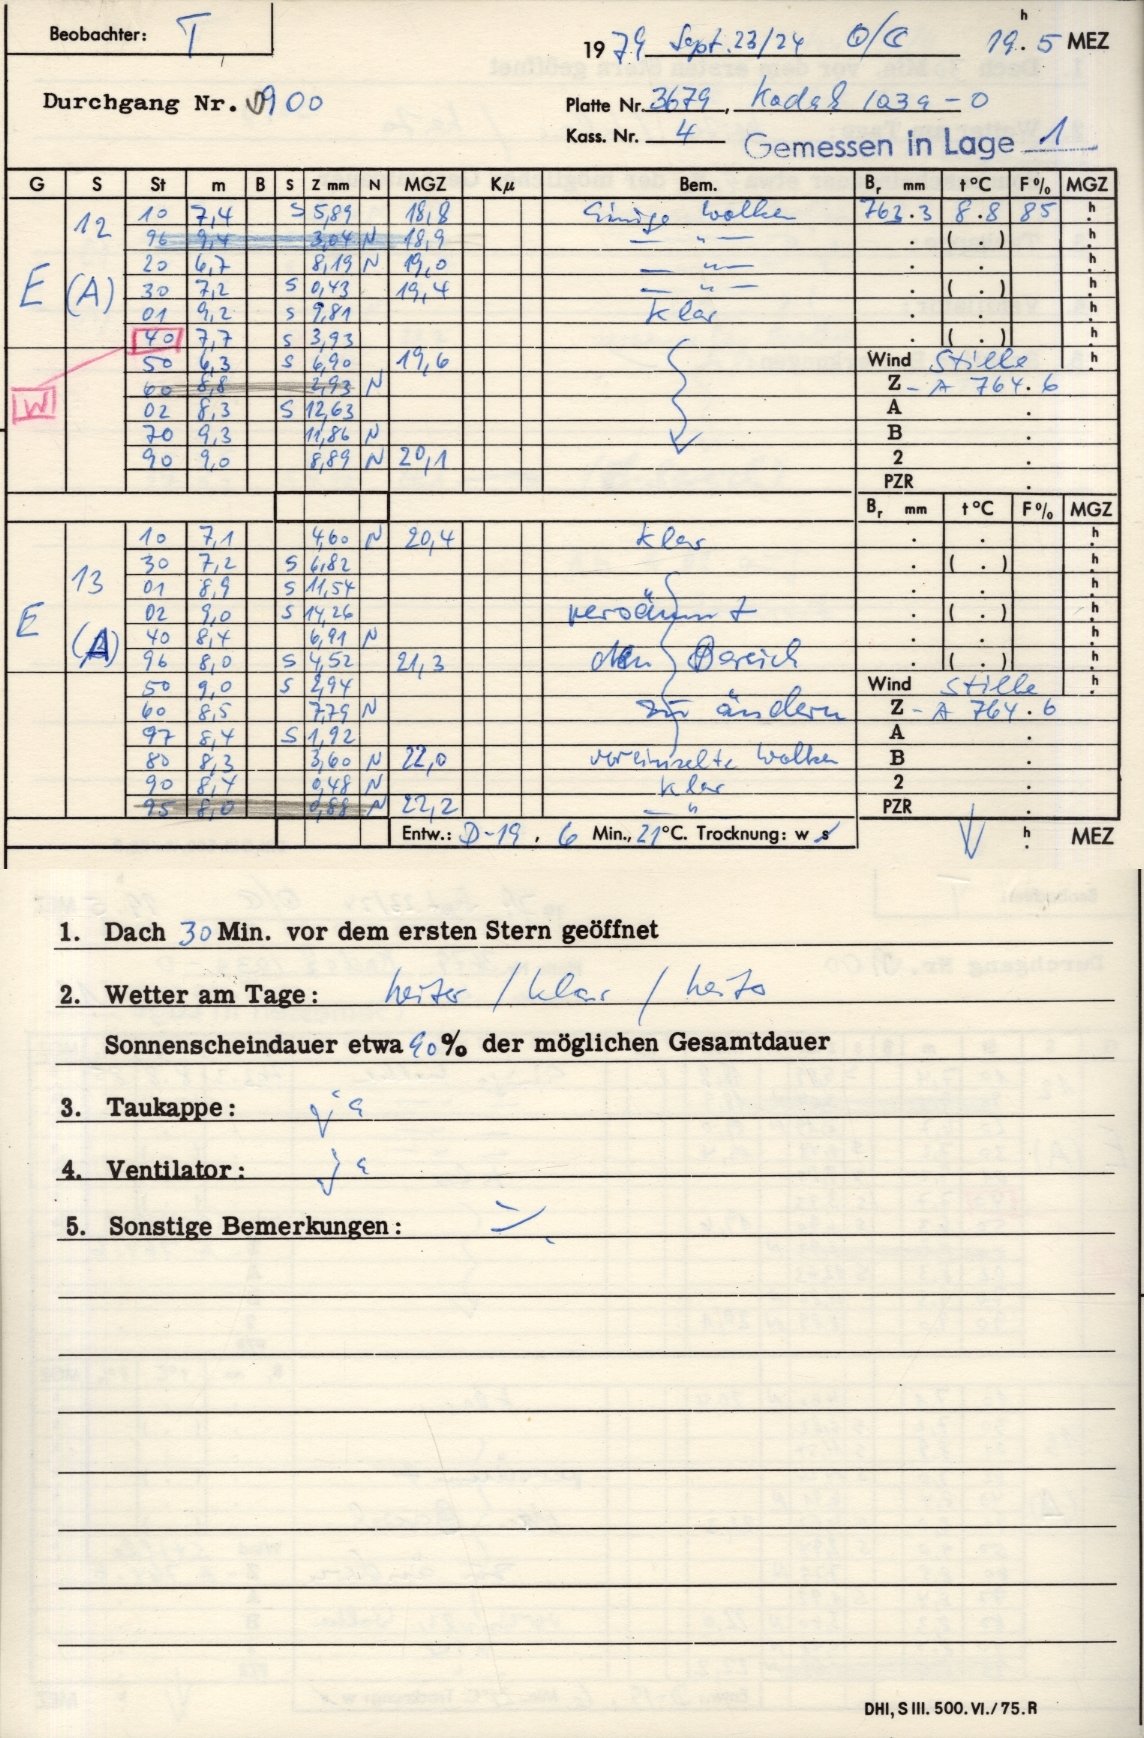 Beobachter: T
1979 Sept. 23/24 O/C 19h.5 MEZ
Durchgang Nr. 900
Platte Nr. 3679, Kodak 103a-O
Kass. Nr. 4 Gemessen in Lage 1
G S St m B S Z mm N MGZ Kμ Bem. Br mm t°C F% MGZ
E 12 (A)
10 7,4 S 5,89 18,8 Einige Wolken 763.3 8.8 85 h
96 9,4 3,04 N 18,9 — " — . ( . )
20 6,7 8,19 N 19,0 — " — . . h
30 7,2 S 0,43 19,4 — " — . ( . ) h
01 9,2 S 9,81 klar . . h
40 7,7 S 3,93 . ( . )
50 6,3 S 6,90 19,6 Wind Stille h
W 60 8,8 2,93 N Z - A 764.6
02 8,3 S 12,63 A .
70 9,3 11,86 N B .
90 9,0 8,89 N 20,1 2 .
PZR .
Br mm t°C F% MGZ
E 13 (A)
10 7,1 4,60 N 20,4 klar . . h
30 7,2 S 6,82 . ( . ) h
01 8,9 S 11,54 . . h
02 9,0 S 14,26 versäumt . ( . ) h
40 8,4 6,91 N . . h
96 8,0 S 4,52 21,3 den Bereich . ( . ) h
50 9,0 S 2,94 Wind Stille h
60 8,5 7,79 N zu ändern Z - A 764.6
97 8,4 S 1,92 A .
80 8,3 3,60 N 22,0 vereinzelte Wolken B .
90 8,4 0,48 N klar 2 .
95 8,0 0,88 N 22,2 — " PZR .
Entw.: D-19, 6 Min., 21°C. Trocknung: w s h. MEZ
1. Dach 30 Min. vor dem ersten Stern geöffnet
2. Wetter am Tage: heiter / klar / heiter
Sonnenscheindauer etwa 90% der möglichen Gesamtdauer
3. Taukappe: ja
4. Ventilator: ja
5. Sonstige Bemerkungen:
DHI, S III. 500. VI./75. R